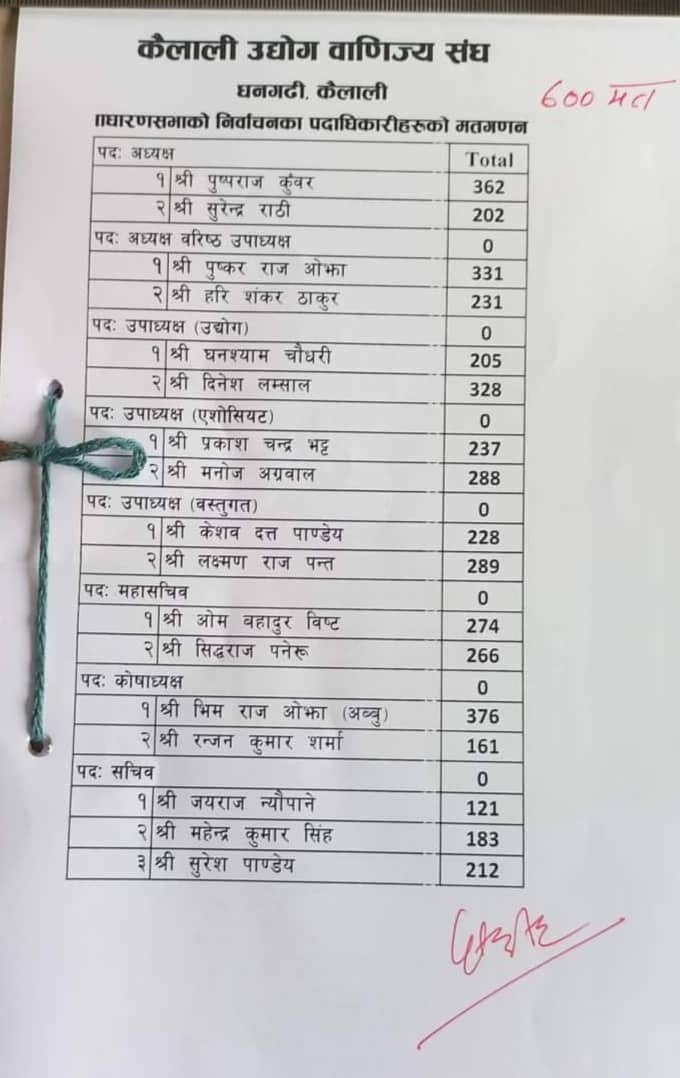 कैलाली उद्योग वाणिज्य संघ
धनगढी, कैलाली
600 मत
ाधारणसभाको निर्वाचनका पदाधिकारीहरुको मतगणन
पदः अध्यक्ष Total
१ श्री पुष्पराज कुँवर 362
२ श्री सुरेन्द्र राठी 202
पदः अध्यक्ष वरिष्ठ उपाध्यक्ष 0
१ श्री पुष्कर राज ओझा 331
२ श्री हरि शंकर ठाकुर 231
पदः उपाध्यक्ष (उद्योग) 0
१ श्री घनश्याम चौधरी 205
२ श्री दिनेश लम्साल 328
पदः उपाध्यक्ष (एशोसियट) 0
१ श्री प्रकाश चन्द्र भट्ट 237
२ श्री मनोज अग्रवाल 288
पदः उपाध्यक्ष (वस्तुगत) 0
१ श्री केशव दत्त पाण्डेय 228
२ श्री लक्ष्मण राज पन्त 289
पदः महासचिव 0
१ श्री ओम बहादुर विष्ट 274
२ श्री सिद्धराज पनेरू 266
पदः कोषाध्यक्ष 0
१ श्री भिम राज ओझा (अब्बु) 376
२ श्री रन्जन कुमार शर्मा 161
पदः सचिव 0
१ श्री जयराज न्यौपाने 121
२ श्री महेन्द्र कुमार सिंह 183
३ श्री सुरेश पाण्डेय 212